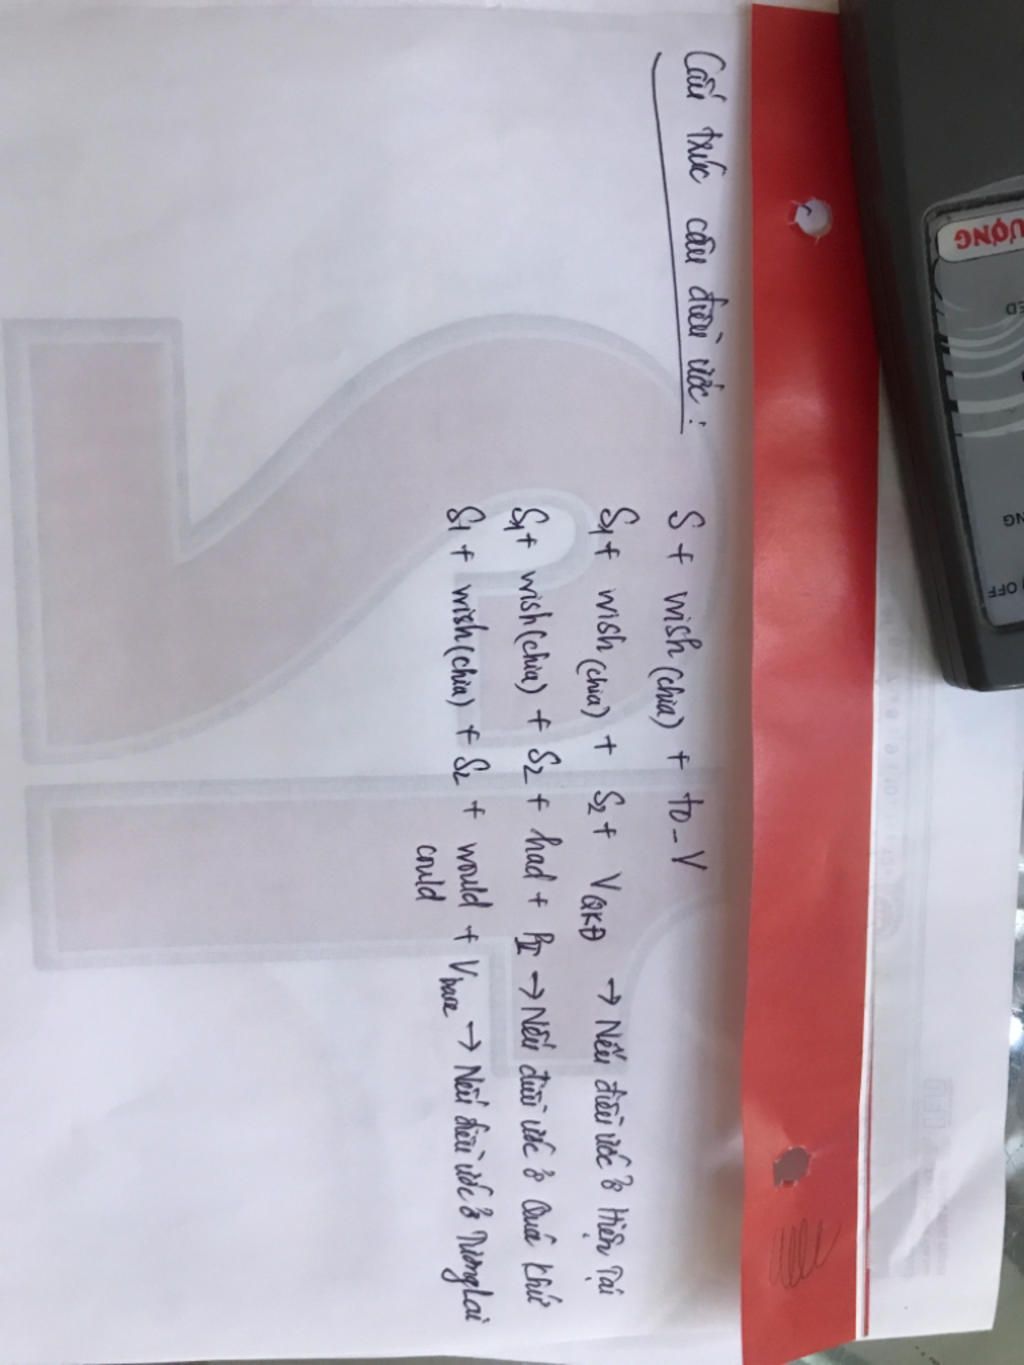 Cấu trúc câu điều ước :
S + wish (chia) + to - V
S1 + wish (chia) + S2 + VQKĐ → Nếu điều ước ở Hiện Tại
S1 + wish (chia) + S2 + had + PII → Nếu điều ước ở Quá khứ
S1 + wish (chia) + S2 + would + Vbare → Nếu điều ước ở Tương Lai
could
ƯỢNG
ED
NG
OFF